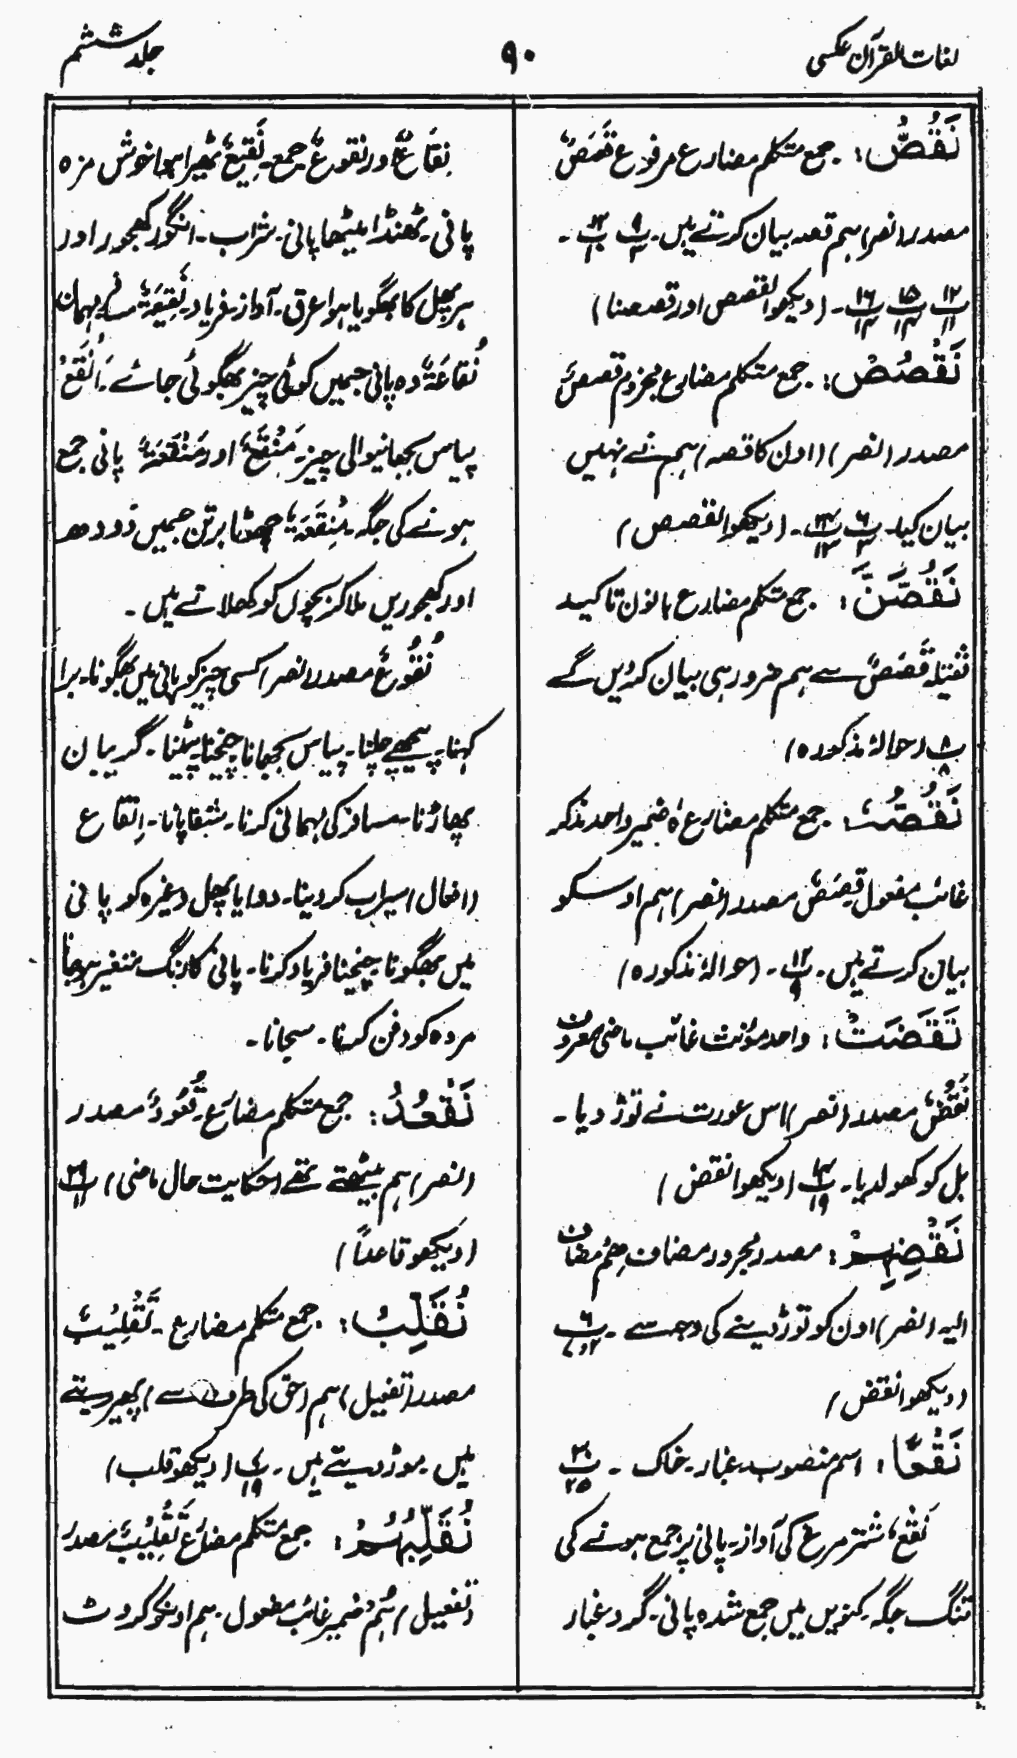 لغات القرآن عکسی
۹۰
جلد ششم
نَقُصُّ: جمع متکلم مضارع مرفوع قَصَصٌ
مصدر (نصر) ہم قصہ بیان کرتے ہیں۔ پ ۹/۳ پ ۱۲/۱۰ ۔
پ ۱۲/۱۱ پ ۱۵/۱۴ پ ۱۶/۱۴ ۔ (دیکھو القصص اور قصصنا)
نَقْصُصْ: جمع متکلم مضارع مجزوم قصصٌ
مصدر (نصر) (اون کا قصہ) ہم نے نہیں
بیان کیا۔ پ ۶/۳ پ ۲۴/۱۳ ۔ (دیکھو القصص)
نَقُصَّنَّ: جمع متکلم مضارع بانون تاکید
ثقیلہ قَصَصٌ سے ہم ضرور ہی بیان کریں گے
پ ۸/۸ (حوالۂ مذکورہ)
نَقُصُّہٗ: جمع متکلم مضارع ہٗ ضمیر واحد مذکر
غائب مفعول قصَصٌ مصدر (نصر) ہم اوسکو
بیان کرتے ہیں۔ پ ۱۲/۹ ۔ (حوالۂ مذکورہ)
نَقَضَتْ: واحد مؤنث غائب ماضی معروف
نَقْضٌ مصدر (نصر) اس عورت نے توڑ دیا۔
بل کو کھولدیا۔ پ ۱۴/۱۹ (دیکھو انقض)
نَقْضِہِمْ: مصدر مجرور مضاف ہم مضاف
الیہ (نصر) اون کو توڑ دینے کی وجہ سے ۔ پ ۶/۲و۷
(دیکھو انقض)
نَقْعًا: اسم منصوب۔ غبار۔ خاک ۔ پ ۳۰/۲۵
نَقْعٌ شتر مرغ کی آواز۔ پانی پر جمع ہونے کی
تنگ جگہ۔ کنویں میں جمع شدہ پانی۔ گرد غبار
نِقَاعٌ اور نقوعٌ جمع۔ نَقِیْعٌ ٹھیرا ہوا خوش مزہ
پانی۔ ٹھنڈا میٹھا پانی۔ شراب۔ انگور کھجور اور
ہر پھل کا بھگویا ہوا عرق۔ آواز۔ فریاد۔ نَقِیْعَۃٌ مسافر یہمان
نُقَاعَۃٌ وہ پانی جسمیں کوئی چیز بھگوئی جائے۔ اَنْقَعُ
پیاس بجھانیوالی چیز۔ مَنْقَعٌ اور مَنْقَعَۃٌ پانی جمع
ہونے کی جگہ۔ مِنْقَعَۃٌ چھوٹا برتن جسمیں دودھ
اور کھجوریں ملا کر بچوں کو کھلاتے ہیں ۔
نُقُوعٌ مصدر (نصر) کسی چیز کو پانی میں بھگونا۔ برا
کہنا۔ پیچھے چلنا۔ پیاس بجھانا چیخنا پیٹنا۔ گریبان
پھاڑنا۔ مسافر کی مہمانی کرنا۔ شفا پانا۔ اِنْقَاع
(افعال) سیراب کر دینا۔ دوا یا پھل وغیرہ کو پانی
میں بھگونا۔ چیخنا فریاد کرنا۔ پانی کا رنگ متغیر ہو جانا
مردہ کو دفن کرنا۔ سجانا۔
نَقْعُدُ: جمع متکلم مضارع۔ قُعُودٌ مصدر
(نصر) ہم بیٹھتے تھے (حکایت حال ماضی) پ ۲۹/۱۱
(دیکھو قاعداً)
نُقَلِّبُ: جمع متکلم مضارع۔ تَقْلِیْبٌ
مصدر (تفعیل) ہم (حق کی طرف سے) پھیر دیتے
ہیں۔ موڑ دیتے ہیں۔ پ ۷/۱۹ (دیکھو قلب)
نُقَلِّبُہُمْ: جمع متکلم مضارع تَقْلِیْبٌ مصدر
(تفعیل) ہُمْ ضمیر غائب مفعول۔ ہم اونکو کروٹ